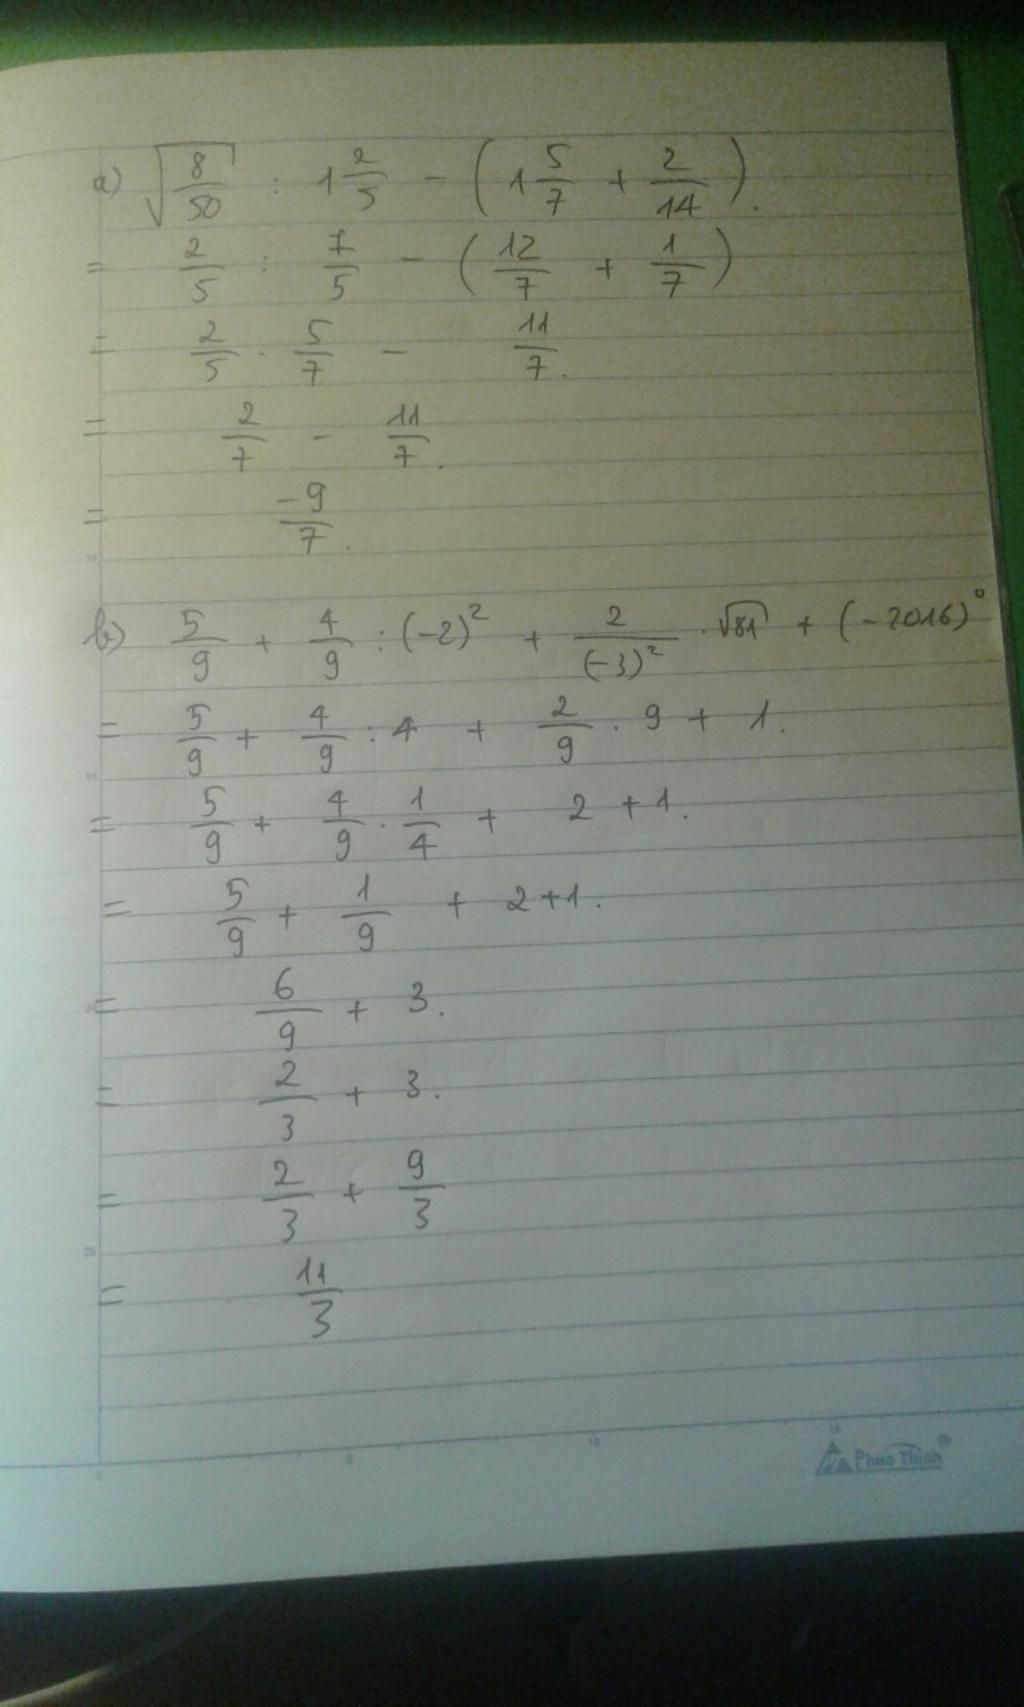 a) √(8/50) : 1 2/5 - (1 5/7 + 2/14).
= 2/5 : 7/5 - (12/7 + 1/7)
= 2/5 . 5/7 - 11/7.
= 2/7 - 11/7.
= -9/7.
b) 5/9 + 4/9 : (-2)² + 2/(-3)² . √81 + (-2016)⁰
= 5/9 + 4/9 : 4 + 2/9 . 9 + 1.
= 5/9 + 4/9 . 1/4 + 2 + 1.
= 5/9 + 1/9 + 2 + 1.
= 6/9 + 3.
= 2/3 + 3.
= 2/3 + 9/3
= 11/3
Phuc Thinh®